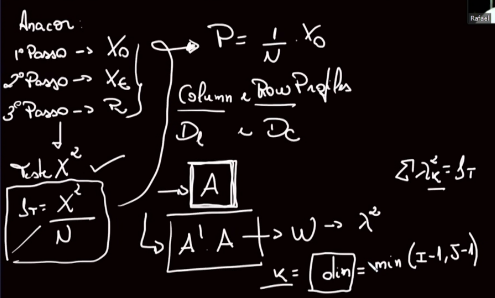 Anacor:
1º Passo → X₀
2º Passo → Xε
3º Passo → R
Teste X²
I_T = X² / N
P = 1/N · X₀
Column e Row Profiles
D_l e D_c
→ A
A' A → W → λ²
K = dim = min (I-1, J-1)
Σλ²_K = I_T
Rafael